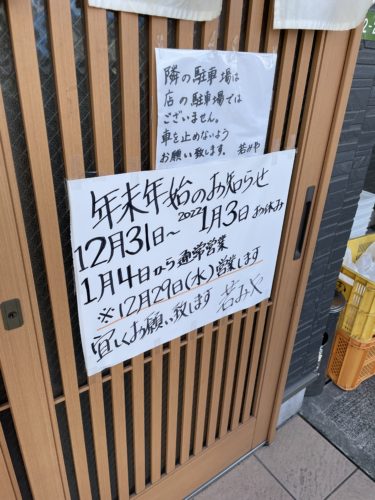 隣の駐車場は
店の駐車場では
ございません。
車を止めないよう
お願い致します。
年末年始のお知らせ
12月31日〜2022 1月3日 お休み
1月4日から通常営業
※12月29日(水)営業します
宜しくお願い致します